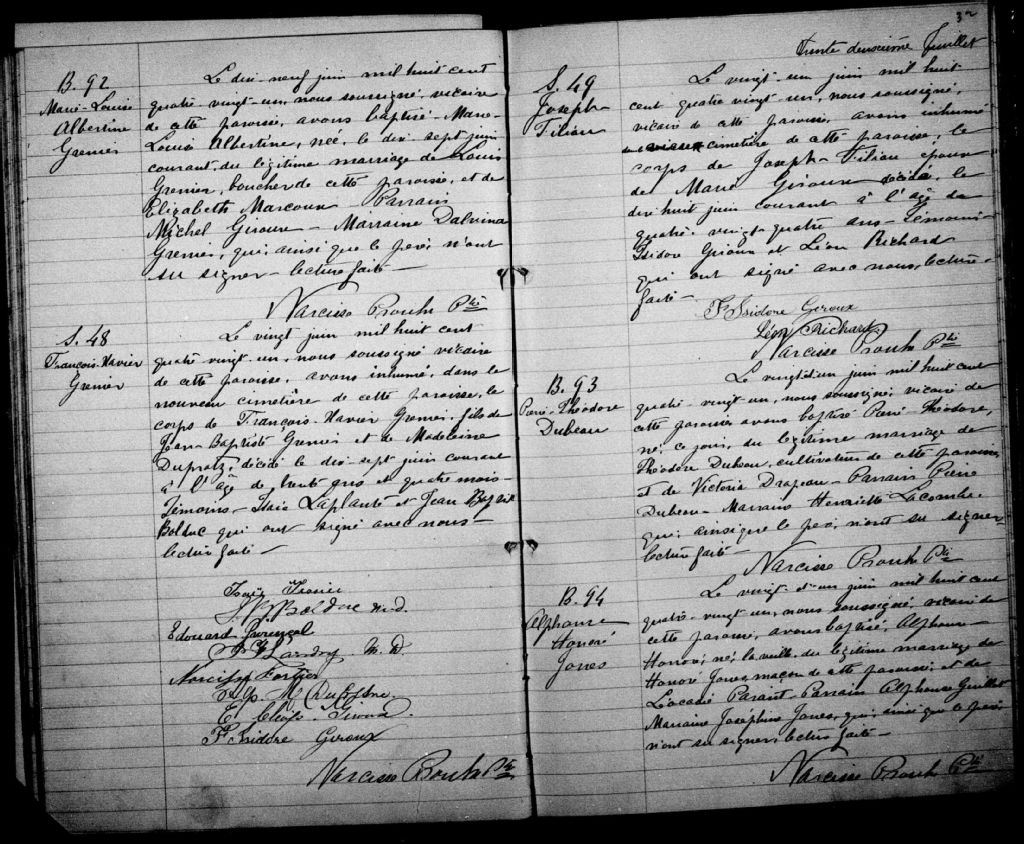 B. 92
Marie-Louise
Albertine
Grenier
Le dix-neuf juin mil huit cent
quatre-vingt-un, nous soussigné, vicaire
de cette paroisse, avons baptisé Marie-
Louise Albertine, née, le dix-sept juin
courant, du légitime mariage de Louis
Grenier, boucher de cette paroisse, et de
Elizabeth Marcoux Parrain
Michel Giroux - Marraine Dalvina
Grenier, qui, ainsi que le père, n'ont
su signer - lecture faite -
Narcisse Proulx Ptre
S. 48
François-Xavier
Grenier
Le vingt juin mil huit cent
quatre-vingt-un, nous soussigné vicaire
de cette paroisse, avons inhumé, dans le
nouveau cimetière de cette paroisse, le
corps de François-Xavier Grenier, fils de
Jean-Baptiste Grenier et de Madeleine
décédé le dix-sept juin courant
à l'âge de ans et quatre mois -
Témoins - Laplante et Jean Bapt
Bolduc qui ont signé avec nous -
lecture faite -
Bolduc M.D.
Edouard
Landry M.D.
Narcisse Fortier
F. Isidore Giroux
Narcisse Proulx Ptre
32
Trente deuxième feuillet
S. 49
Joseph
Filion
Le vingt-un juin mil huit
cent quatre-vingt-un, nous soussigné,
vicaire de cette paroisse, avons inhumé
cimetière de cette paroisse, le
corps de Joseph Filion époux
de Marie Giroux décédé, le
dix-huit juin courant à l'âge de
quatre-vingt-quatre ans Témoins -
Isidore Giroux et Léon Richard
qui ont signé avec nous, lecture
faite -
F. Isidore Giroux
Léon Richard
Narcisse Proulx Ptre
B. 93
Pierre-Théodore
Dubeau
Le vingt-d'un juin mil huit cent
quatre-vingt-un, nous soussigné, vicaire de
cette paroisse avons baptisé Pierre-Théodore,
né, ce jour, du légitime mariage de
Théodore Dubeau, cultivateur de cette paroisse,
& de Victoria Drapeau - Parrain Pierre
Dubeau - Marraine Henriette Lacombe.
qui, ainsi que le père, n'ont su signer,
lecture faite -
Narcisse Proulx Ptre
B. 94
Alphonse
Honoré
Jones
Le vingt-d'un juin mil huit cent
quatre-vingt-un, nous soussigné, vicaire de
cette paroisse, avons baptisé, Alphonse
Honoré, né, la veille, du légitime mariage de
Honoré Jones, maçon de cette paroisse, et de
Léocadie Parant - Parrain Alphonse Guillot
Marraine Joséphine Jones, qui, ainsi que le père,
n'ont su signer, lecture faite -
Narcisse Proulx Ptre